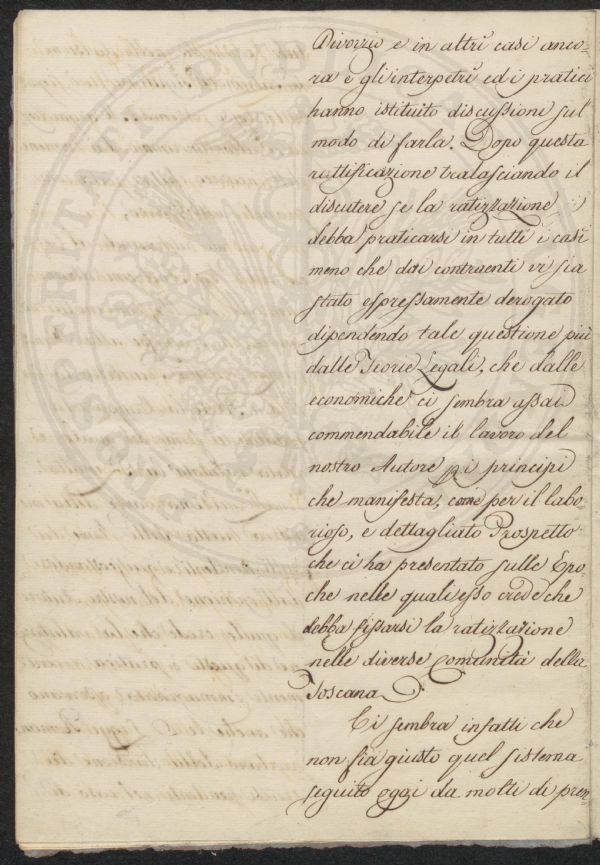 Divorzio e in altri casi anco-
ra e gl'interpetri ed i pratici
hanno istituito discussioni sul
modo di farla. Dopo questa
rettificazione tralasciando il
discutere se la ratizzazione
debba praticarsi in tutti i casi
meno che dai contraenti vi sia
stato espressamente derogato
dipendendo tale questione più
dalle Teorie Legali, che dalle
economiche ci sembra assai
commendabile il lavoro del
nostro Autore pei principj
che manifesta, come per il labo-
rioso, e dettagliato Prospetto
che ci ha presentato sulle Epo-
che nelle quali esso crede che
debba fissarsi la ratizzazione
nelle diverse comunità della
Toscana.
Ci sembra infatti che
non sia giusto quel sistema
seguito oggi da molti di pren-
PROSPERITATI PUBLICAE